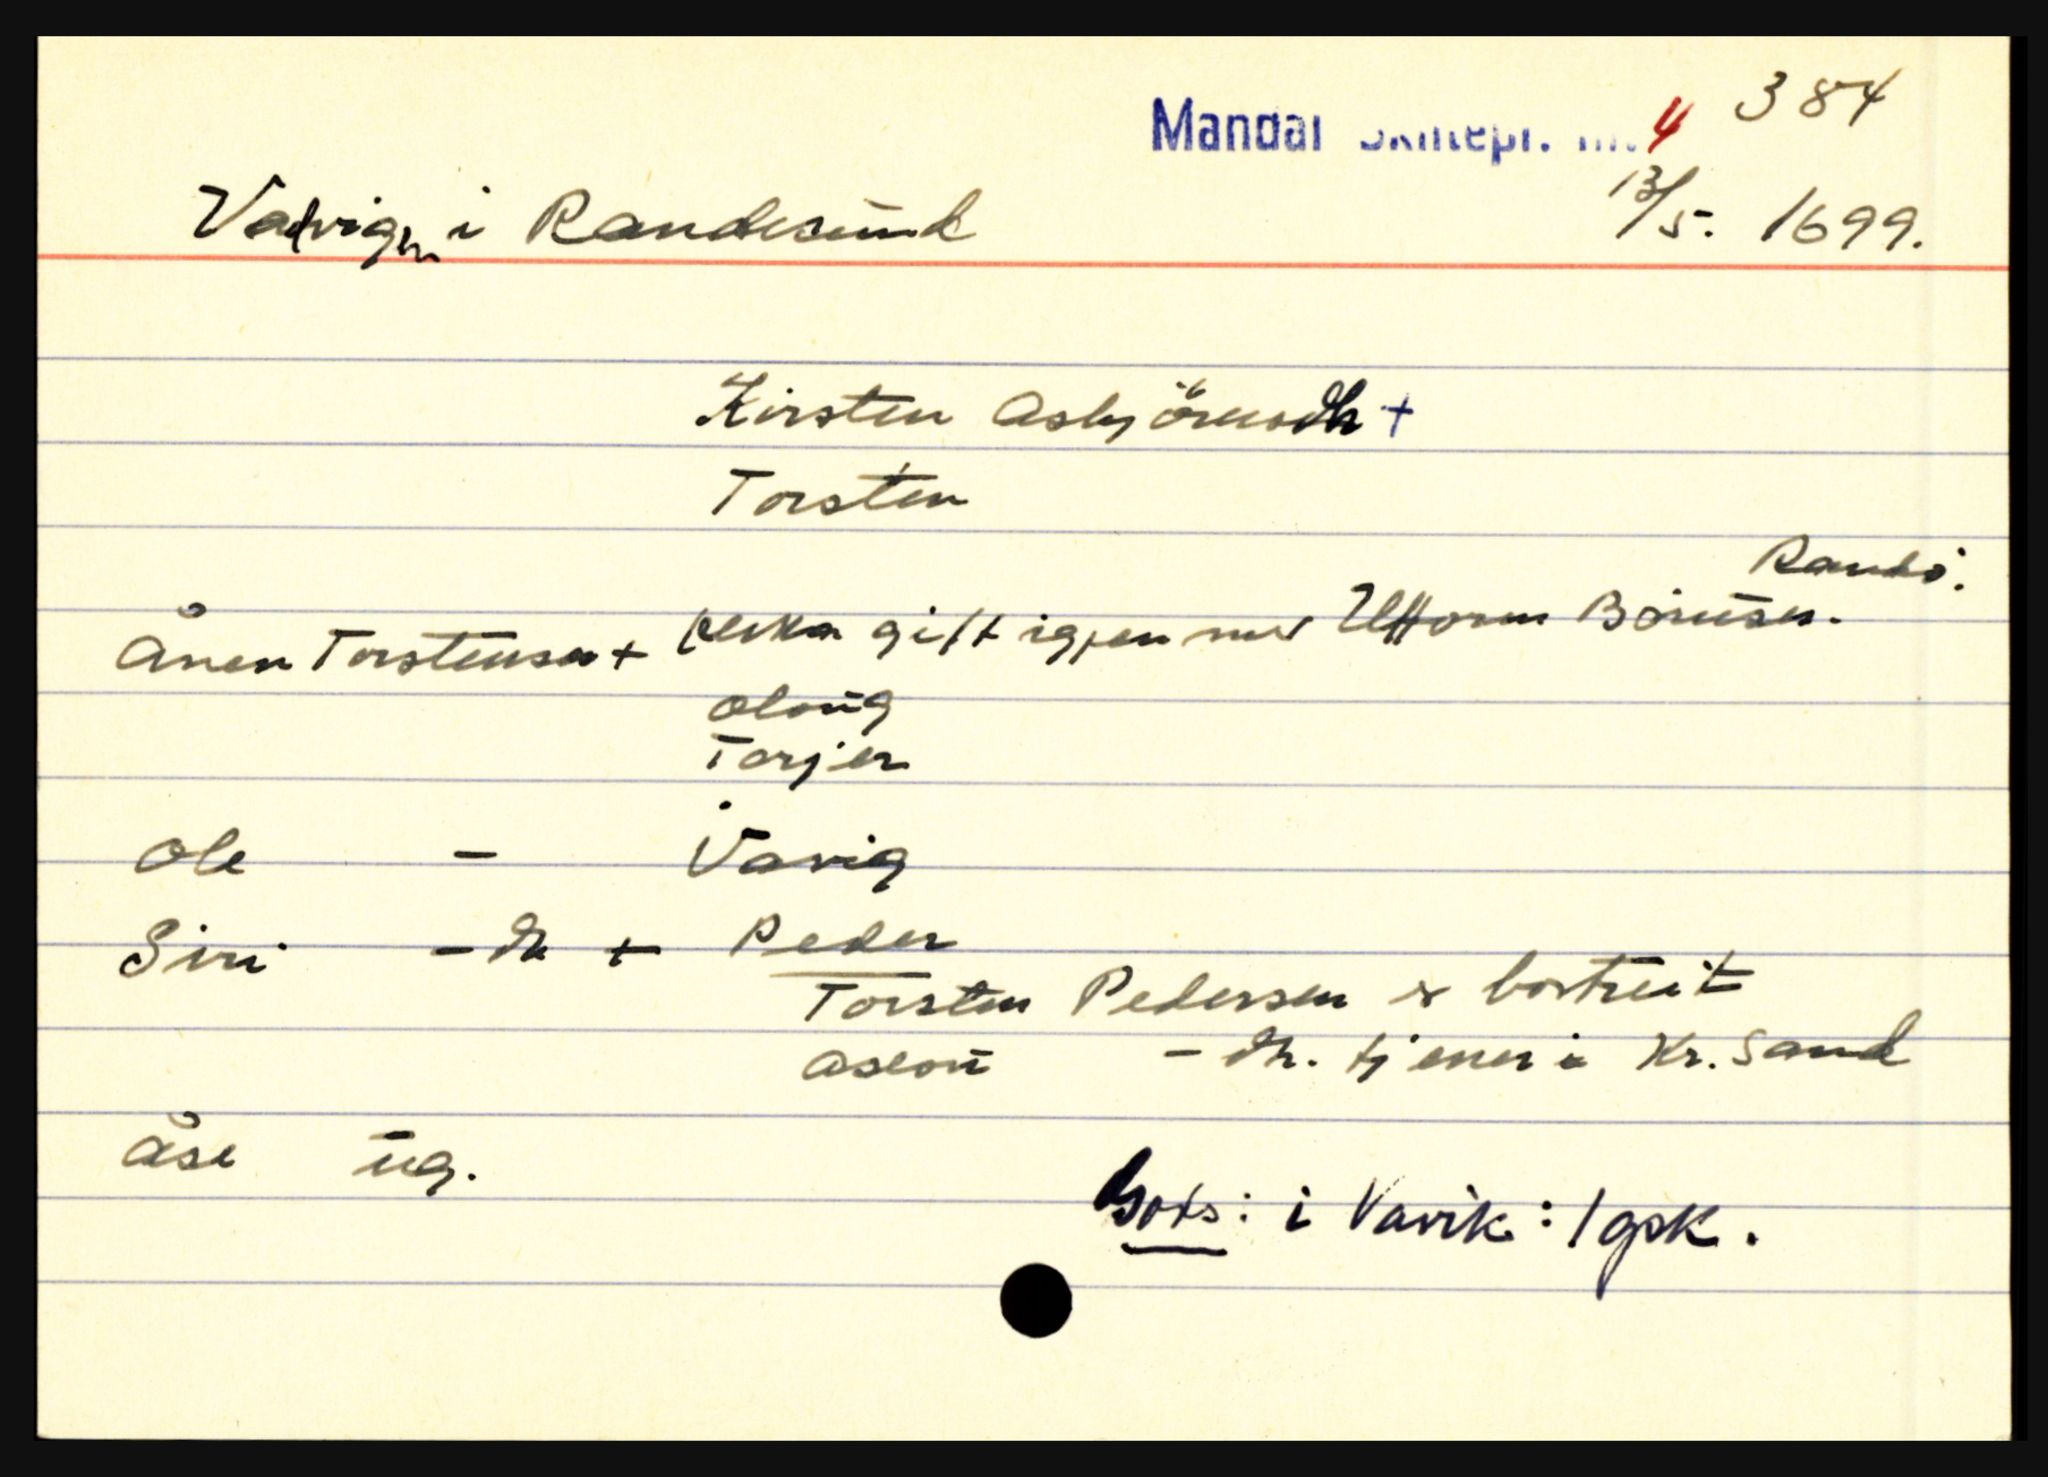 Mandal Skiftepr. nr. 4 384
13/5. 1699.
Valvigen i Randesund
Kirsten Asbjörnsdh +
Torsten
Randö.
Ånen Torstensen + enka gift igjen med Uttorm Börusen.
Oloug
Torjer
Ole - i Vavig
Siri - dh + Peder
Torsten Pedersen er bortreist
Aslou - dh. tjener i Kr. Sand
Åse ug.
Gods: i Vavik: 1 gsk.